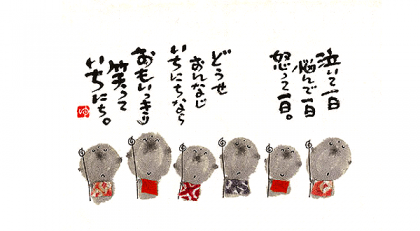 泣いて一日
悩んで一日
怒って一日。
どうせ
おんなじ
いちにちなら
おもいっきり
笑って
いちにち。